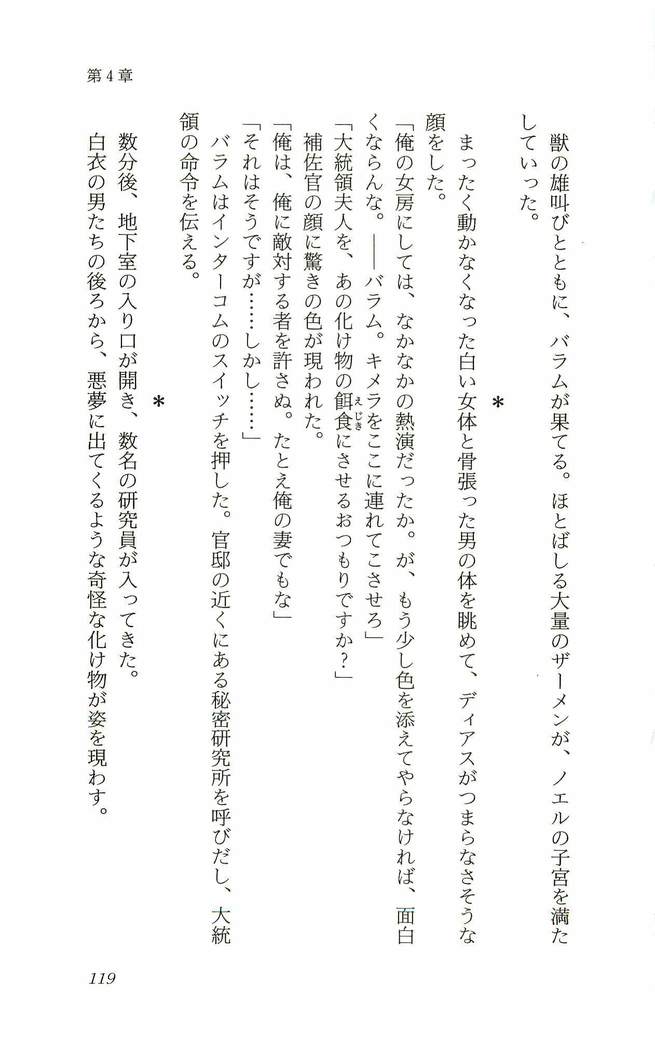 第4章
獣の雄叫びとともに、バラムが果てる。ほとばしる大量のザーメンが、ノエルの子宮を満た
していった。
＊
まったく動かなくなった白い女体と骨張った男の体を眺めて、ディアスがつまらなさそうな
顔をした。
「俺の女房にしては、なかなかの熱演だったか。が、もう少し色を添えてやらなければ、面白
くならんな。――バラム。キメラをここに連れてこさせろ」
「大統領夫人を、あの化け物の餌食にさせるおつもりですか？」
えじき
補佐官の顔に驚きの色が現われた。
「俺は、俺に敵対する者を許さぬ。たとえ俺の妻でもな」
「それはそうですが……しかし……」
バラムはインターコムのスイッチを押した。官邸の近くにある秘密研究所を呼びだし、大統
領の命令を伝える。
＊
数分後、地下室の入り口が開き、数名の研究員が入ってきた。
白衣の男たちの後ろから、悪夢に出てくるような奇怪な化け物が姿を現わす。
119